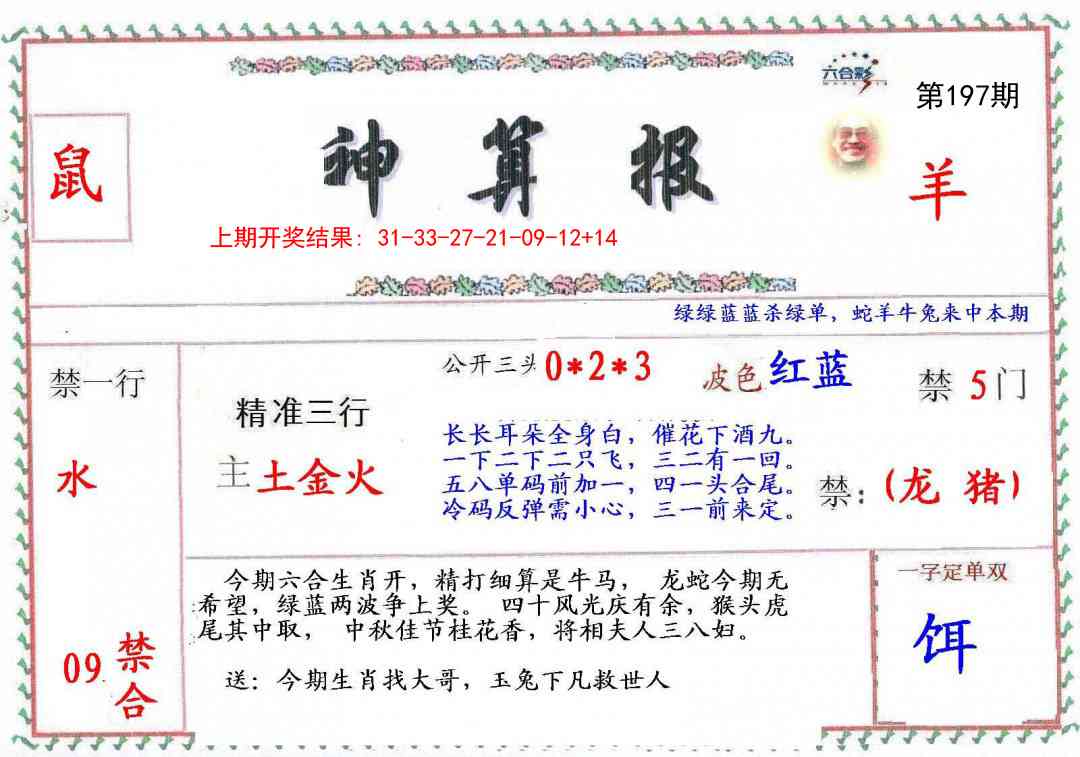 六合彩
第197期
鼠
神算报
羊
上期开奖结果: 31-33-27-21-09-12+14
绿绿蓝蓝杀绿单，蛇羊牛兔来中本期
公开三头 0*2*3
波色 红蓝
禁一行
禁 5 门
精准三行
长长耳朵全身白，催花下酒九。
一下二下二只飞，三二有一回。
水
主 土金火
五八单码前加一，四一头合尾。
禁: (龙 猪)
冷码反弹需小心，三一前来定。
今期六合生肖开，精打细算是牛马， 龙蛇今期无
希望，绿蓝两波争上奖。 四十风光庆有余，猴头虎
尾其中取， 中秋佳节桂花香，将相夫人三八妇。
送: 今期生肖找大哥，玉兔下凡救世人
一字定单双
饵
09 禁合